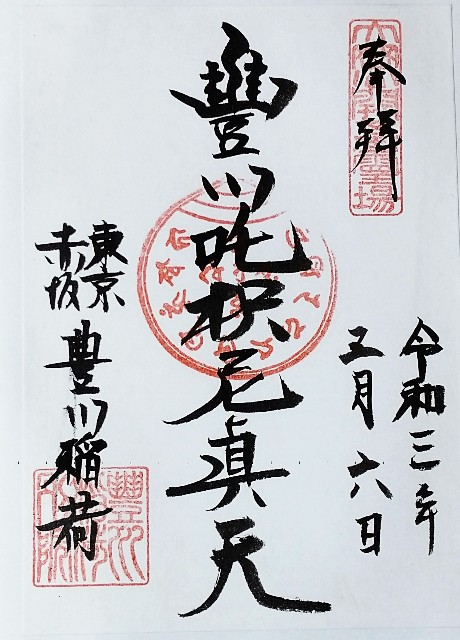 奉拝
令和三年
五月六日
豐川吒枳尼眞天
東京
赤坂
豊川稲荷